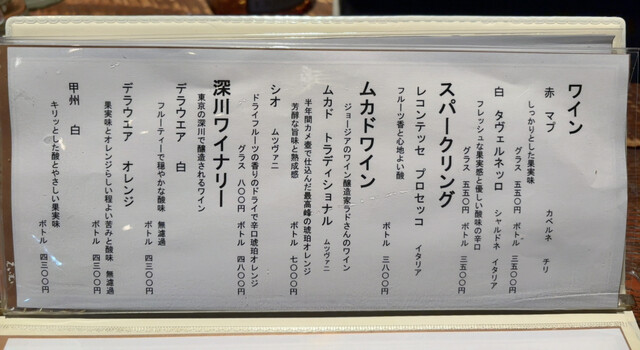 ワイン
赤 マブ カベルネ チリ
しっかりとした果実味
グラス 五五〇円 ボトル 三五〇〇円
白 タヴェルネッロ シャルドネ イタリア
フレッシュな果実感と優しい酸味の辛口
グラス 五五〇円 ボトル 三五〇〇円
スパークリング
レコンテッセ プロセッコ イタリア
フルーツ香と心地よい酸
ボトル 三八〇〇円
ムカドワイン
ジョージアのワイン醸造家ラドさんのワイン
ムカド トラディショナル ムツヴァニ
半年間カメ壺で仕込んだ最高峰の琥珀オレンジ
芳醇な旨味と熟成感
ボトル 七〇〇〇円
シオ ムツヴァニ
ドライフルーツの香りのドライで辛口琥珀オレンジ
グラス 八〇〇円 ボトル 四八〇〇円
深川ワイナリー
東京の深川で醸造されるワイン
デラウエア 白
フルーティーで穏やかな酸味 無濾過
ボトル 四三〇〇円
デラウエア オレンジ
果実味とオレンジらしい程よい苦みと酸味 無濾過
ボトル 四三〇〇円
甲州 白
キリッとした酸とやさしい果実味
ボトル 四三〇〇円